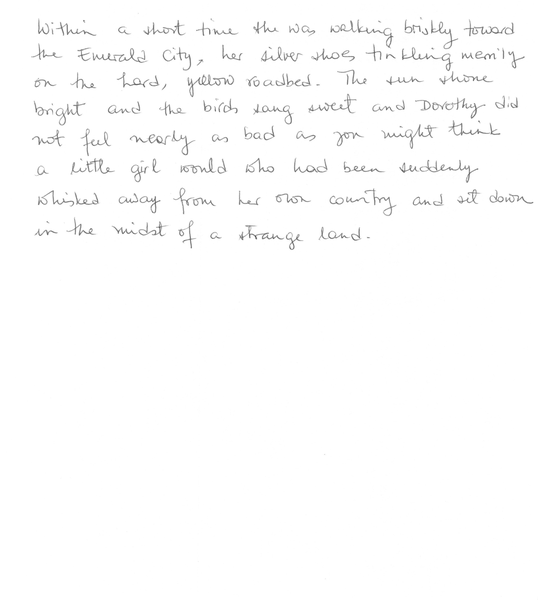 Within a short time she was walking briskly toward
the Emerald City, her silver shoes tinkling merrily
on the hard, yellow roadbed. The sun shone
bright and the birds sang sweet and Dorothy did
not feel nearly as bad as you might think
a little girl would who had been suddenly
whisked away from her own country and set down
in the midst of a strange land.